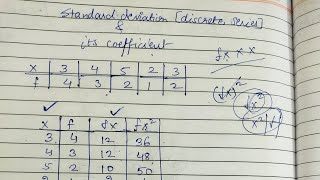 Standard deviation [discrete series]
&
its coefficient
x 3 4 5 2 3
f 4 3 2 1 2
fx x x
(fx)²
x²
x² f
x f fx fx²
3 4 12 36
4 3 12 48
5 2 10 50